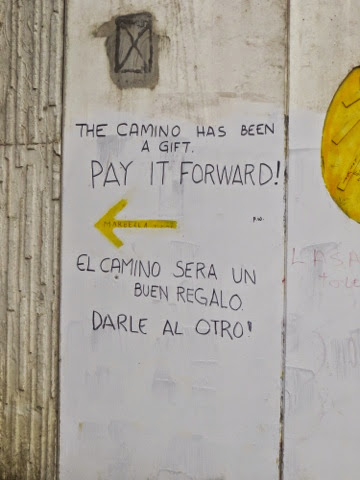 THE CAMINO HAS BEEN
A GIFT.
PAY IT FORWARD!
P.W.
EL CAMINO SERA UN
BUEN REGALO.
DARLE AL OTRO!